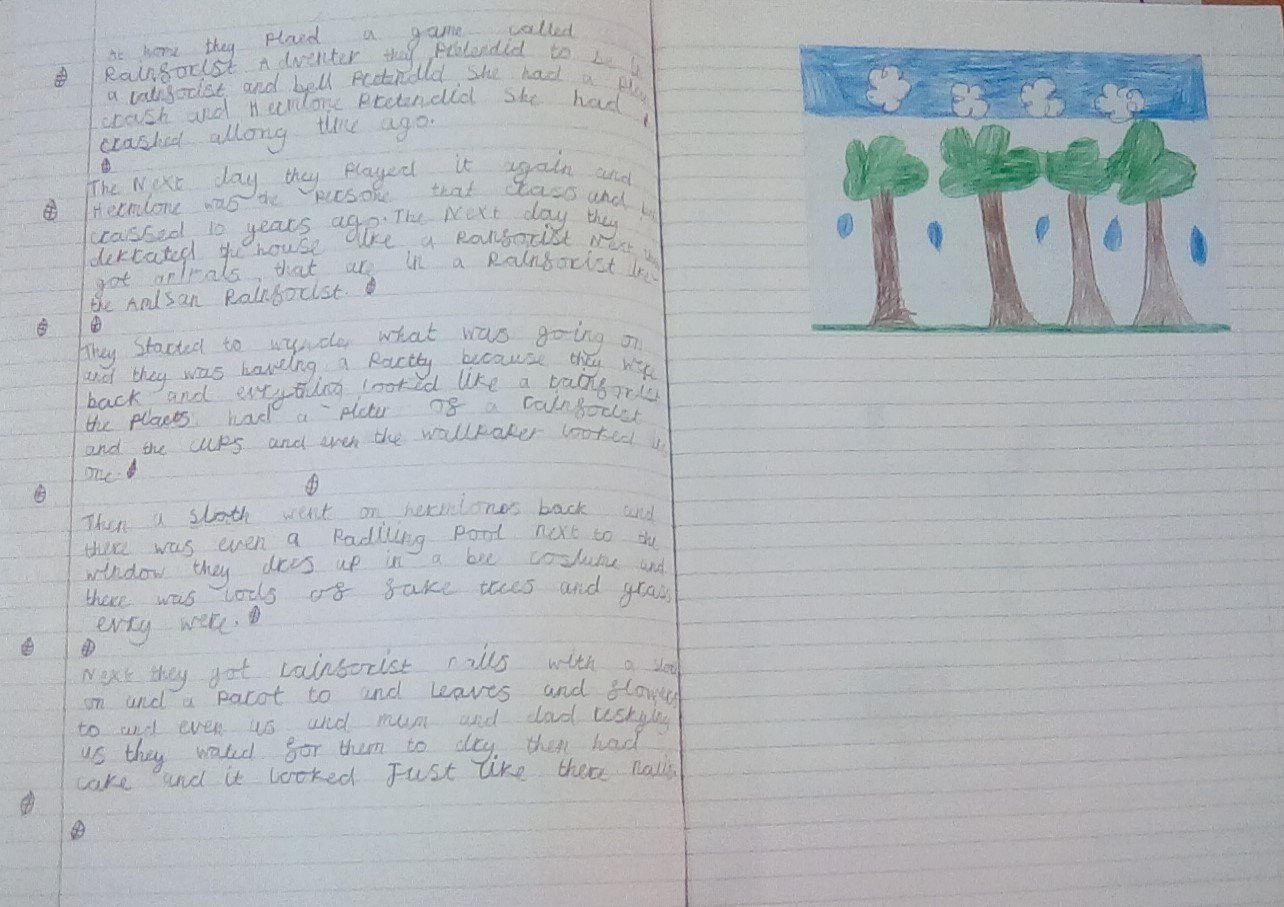 At home they Plaed a game called
Rainforist Adventer they Pretendid to be in
a rainforist and bell Pretendid she had a Plan
crash and Hermione Pretendid she had
crashed allong time ago.
The Next day they Played it again and
Hermione was the Persone that crass and
crassed 10 years ago. The Next day they
dekrated the house like a Ranforist Next they
got animals that are in a Rainforist like
the Amsan Rainforist.
They Started to wunder what was going on
and they was haveing a Partty because they were
back and evrything looked like a rainforist
the Plaets had a Pictur of a rainforist
and the cups and even the wallpaper looked like
one.
Then a sloth went on hermiones back and
there was even a Padiling Pool next to the
window they dres up in a bee costume and
there was lods of fake trees and grass
evry were.
Next they got rainforist nails with a slo
on and a Parot to and leaves and flowers
to and even us and mum and dad reskying
us they wated for them to dry then had
cake and it looked Just like there nails